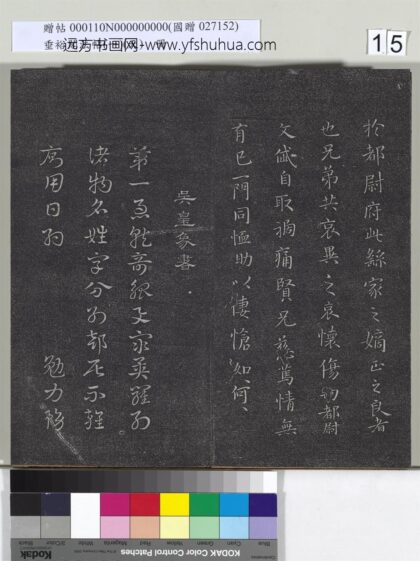 贈帖 000110N000000000(國贈 027152)
远方书画网-www.yfshuhua.com
15
於都尉府此繇家之嫡正之良者
也兄弟共哀異之哀懷傷都尉
文俶自取禍痛賢兄慈篤情無
有已一門同恤助以悽愴如何
吳皇象書
第一急就奇觚與眾異羅列
諸物名姓字分別部居不雜
廁用日約 勉力務
Blue
Cyan
Green
Yellow
Red
Magenta
White
3/Color
Black
KODAK Color Control Patches